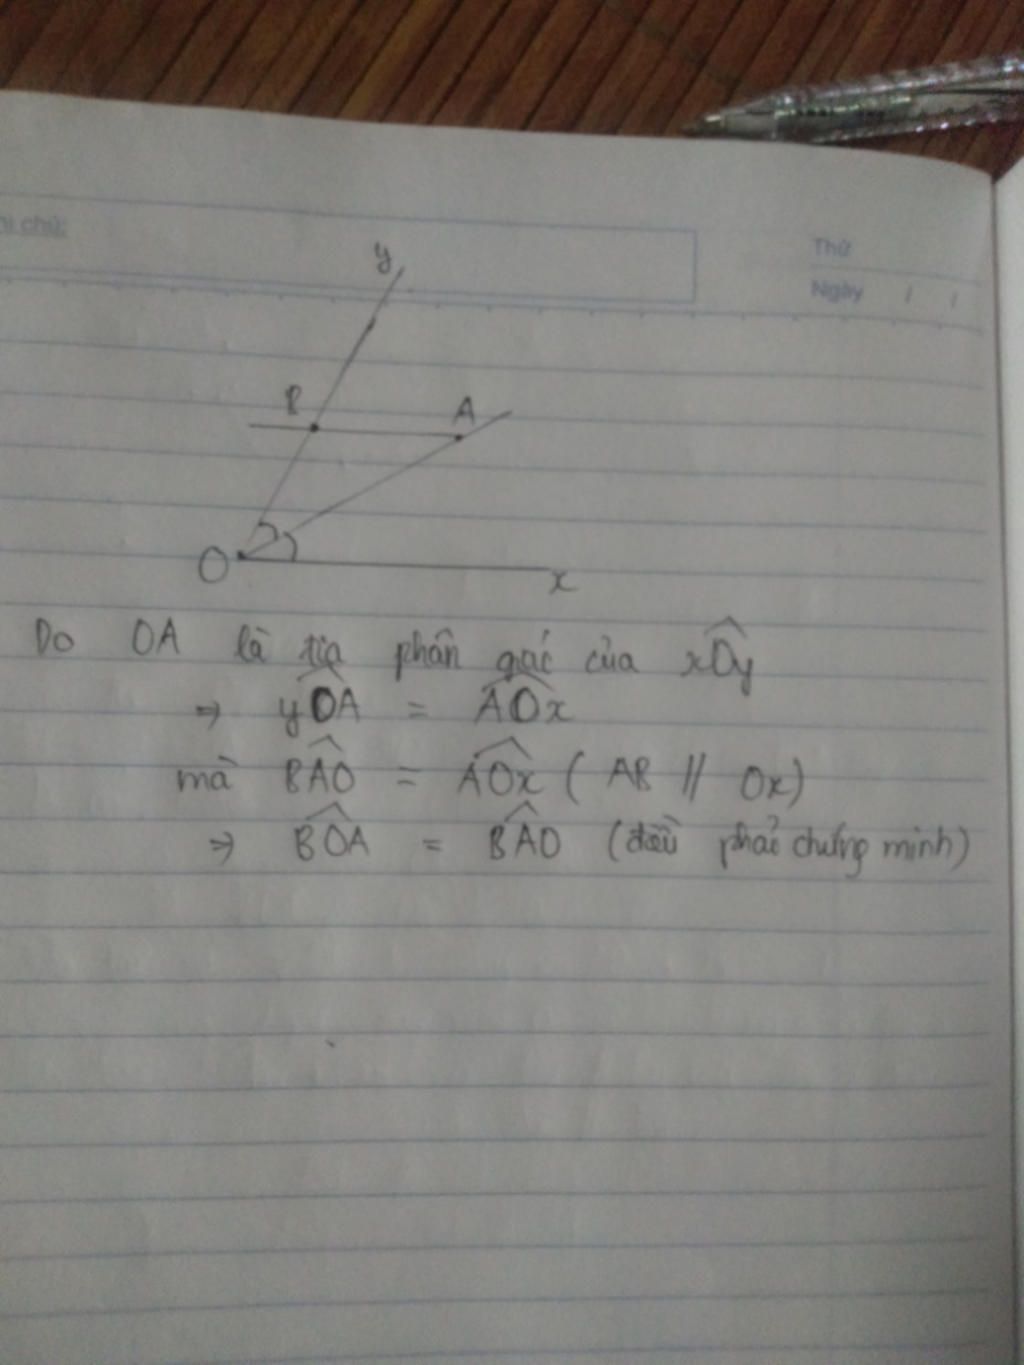 hi chú:
Thứ
Ngày / /
y
B A
O x
Do OA là tia phân giác của xOy
⇒ yOA = AOx
mà BAO = AOx ( AB // Ox)
⇒ BOA = BAO (điều phải chứng minh)